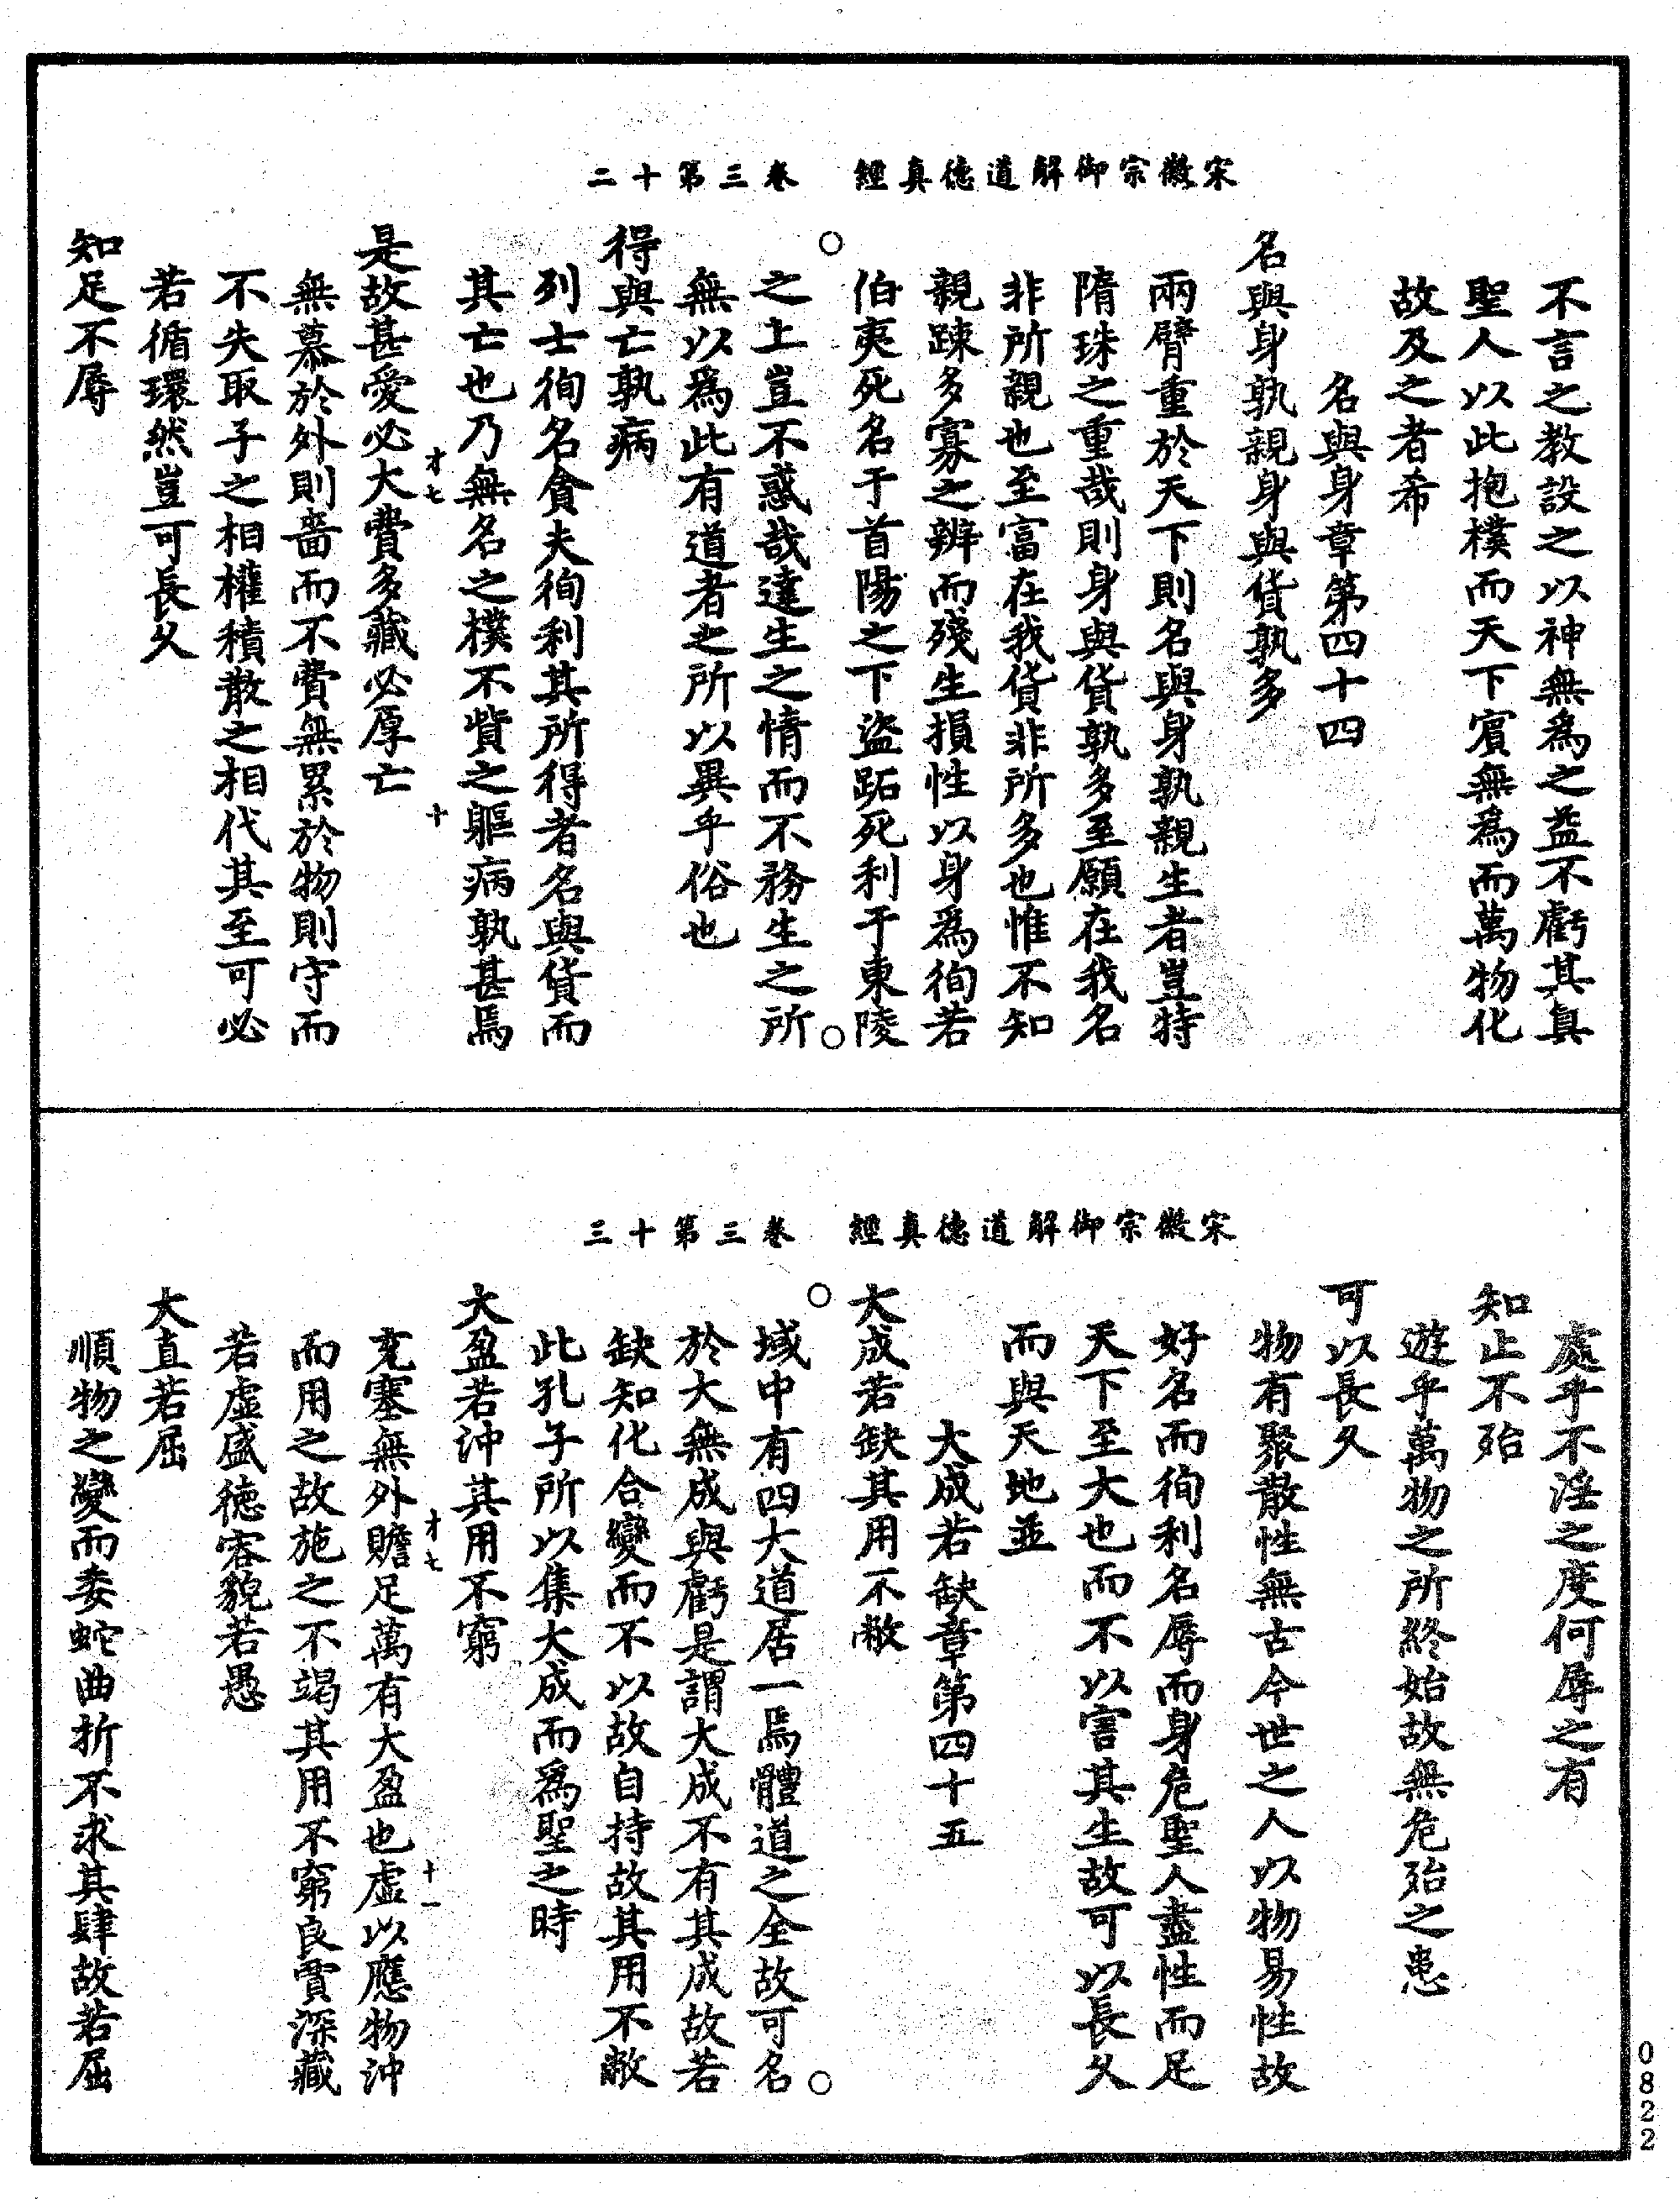 宋徽宗御解道德真經　卷三第十二
不言之教設之以神無爲之益不虧其真
聖人以此抱樸而天下賓無爲而萬物化
故及之者希
名與身章第四十四
名與身孰親身與貨孰多
兩臂重於天下則名與身孰親生者豈特
隋珠之重哉則身與貨孰多至願在我名
非所親也至富在我貨非所多也惟不知
親踈多寡之辨而殘生損性以身爲徇若
伯夷死名于首陽之下盜跖死利于東陵
之上豈不惑哉達生之情而不務生之所
無以爲此有道者之所以異乎俗也
得與亡孰病
列士徇名貪夫徇利其所得者名與貨而
其亡也乃無名之樸不貲之軀病孰甚焉
才七　十
是故甚愛必大費多藏必厚亡
無慕於外則嗇而不費無累於物則守而
不失取予之相權積散之相代其至可必
若循環然豈可長久
知足不辱
宋徽宗御解道德真經　卷三第十三
處乎不淫之度何辱之有
知止不殆
遊乎萬物之所終始故無危殆之患
可以長久
物有聚散性無古今世之人以物易性故
好名而徇利名辱而身危聖人盡性而足
天下至大也而不以害其生故可以長久
而與天地並
大成若缺章第四十五
大成若缺其用不敝
域中有四大道居一焉體道之全故可名
於大無成與虧是謂大成不有其成故若
缺知化合變而不以故自持故其用不敝
此孔子所以集大成而爲聖之時
大盈若沖其用不窮
才七　十一
充塞無外贍足萬有大盈也虛以應物沖
而用之故施之不竭其用不窮良賈深藏
若虛盛德容貌若愚
大直若屈
順物之變而委蛇曲折不求其肆故若屈
0822